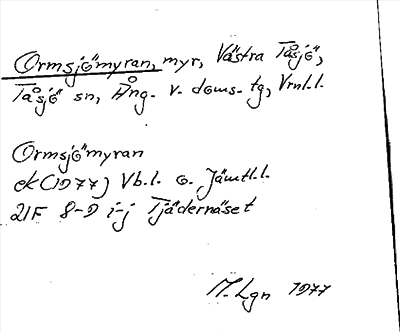 Ormsjömyran, myr, Västra Tåsjö,
Tåsjö sn, Ång. v. doms. tg, Vrnl.l.
Ormsjömyran
ek (1977) Vb.l. o. Jämtl.l.
21F 8-9 i-j Tjädernäset
M. Lgn 1977